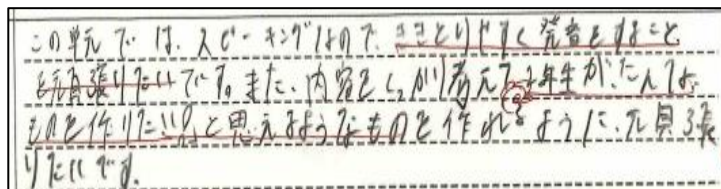 この単元では、スピーキングなので、ききとりやすく発音をすること
を頑張りたいです。また、内容をしっかり考えて、1年生が、こんな
ものを作りたいな。と思えるようなものを作れるように、頑張
りたいです。